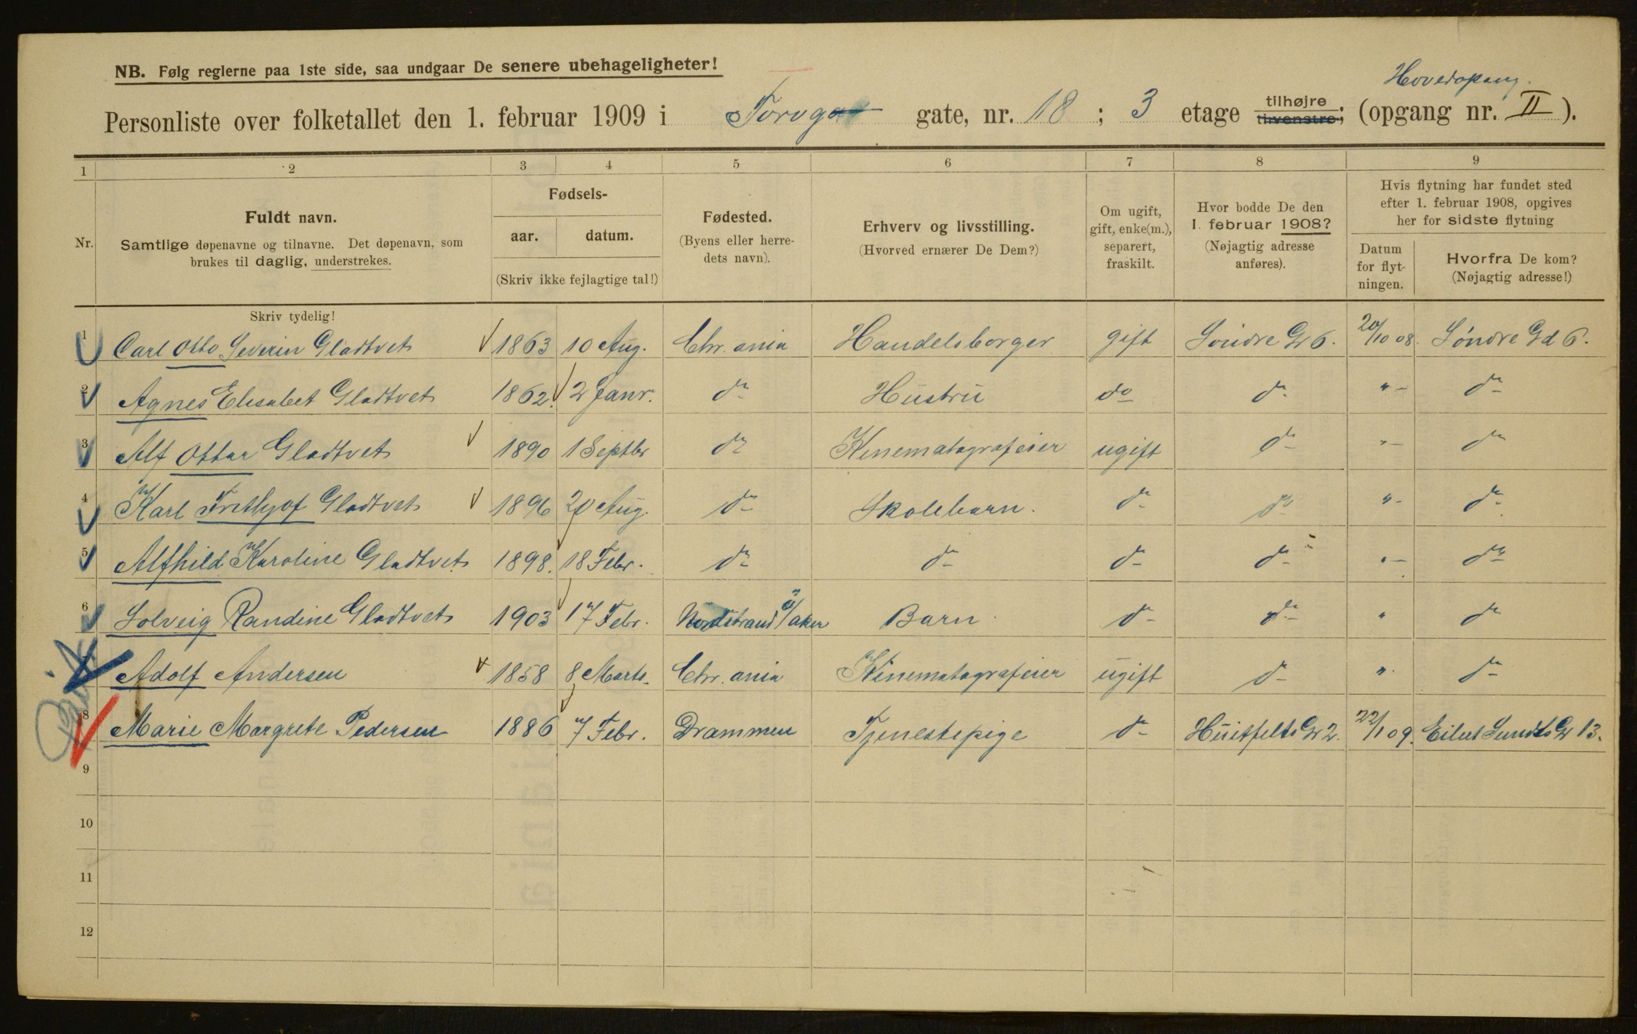 NB. Følg reglerne paa 1ste side, saa undgaar De senere ubehageligheter!
Hovedopgang.
Personliste over folketallet den 1. februar 1909 i Torvga gate, nr. 18 ; 3 etage tilhøjre tilvenstre; (opgang nr. II ).
1 2 3 4 5 6 7 8 9
Nr.
Fuldt navn.
Samtlige døpenavne og tilnavne. Det døpenavn, som
brukes til daglig, understrekes.
Skriv tydelig!
Fødsels-
aar. datum.
(Skriv ikke fejlagtige tal!)
Fødested.
(Byens eller herre-
dets navn).
Erhverv og livsstilling.
(Hvorved ernærer De Dem?)
Om ugift,
gift, enke(m.),
separert,
fraskilt.
Hvor bodde De den
1. februar 1908?
(Nøjagtig adresse
anføres).
Hvis flytning har fundet sted
efter 1. februar 1908, opgives
her for sidste flytning
Datum
for flyt-
ningen.
Hvorfra De kom?
(Nøjagtig adresse!)
1 Carl Otto Severin Gladtvet 1863 10 Aug. Chr.ania Handelsborger gift Søndre Gd 6. 20/10 08. Søndre Gd 6.
2 Agnes Elisabet Gladtvet 1862. 2 Janr. do Hustru do do " — do
3 Alf Ottar Gladtvet 1890 1 Septbr do Kinematografeier ugift do " — do
4 Karl Frithjof Gladtvet 1896 20 Aug. do Skolebarn. do do " — do
5 Alfhild Karoline Gladtvet 1898. 18 Febr. do do do do " — do
6 Solveig Randine Gladtvet 1903 17 Febr. Nordstrand Ø/aker Barn do do " do
Adolf Andersen 1858 8 Marts. Chr.ania Kinematografeier ugift do " do
8 Marie Margrete Pedersen 1886 7 Febr. Drammen Tjenestepige do Huitfelts Gd 2. 22/1 09. Eilert Sundts Gd 13.
9
10
11
12